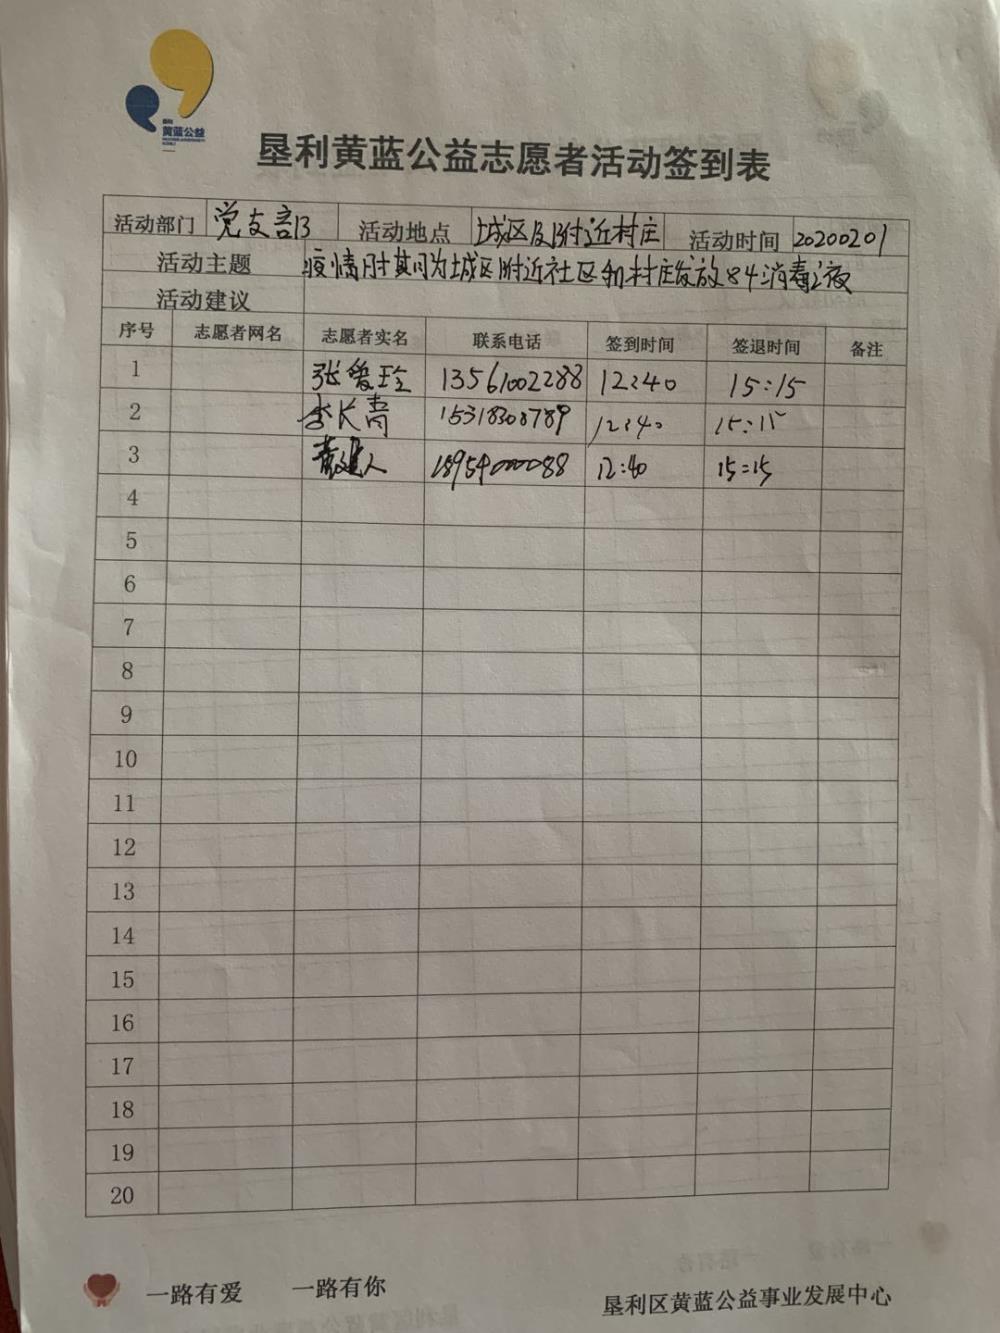 垦利
黄蓝公益
垦利黄蓝公益志愿者活动签到表
活动部门 党支部 活动地点 城区及附近村庄 活动时间 20200201
活动主题 疫情时其间为城区附近社区和村庄发放84消毒液
活动建议
序号 志愿者网名 志愿者实名 联系电话 签到时间 签退时间 备注
1 张爱玲 13561002288 12:40 15:15
2 李长青 15318308789 12:40 15:15
3 人 18954000088 12:40 15:15
4
5
6
7
8
9
10
11
12
13
14
15
16
17
18
19
20
一路有爱 一路有你
垦利区黄蓝公益事业发展中心